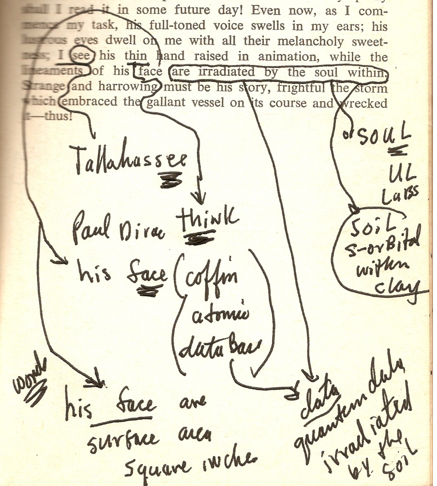 shall I read it in some future day! Even now, as I com-
mence my task, his full-toned voice swells in my ears; his
lustrous eyes dwell on me with all their melancholy sweet-
ness; I see his thin hand raised in animation, while the
lineaments of his face are irradiated by the soul within
Strange and harrowing must be his story, frightful the storm
which embraced the gallant vessel on its course and wrecked
it—thus!
SOUL
Tallahassee
UL
Labs
Paul Dirac think
SOIL
s-orbital
within
clay
his face (coffin
atomic
database
words
his face are
surface area
square inches
data
quantum data
irradiated
by the
soil